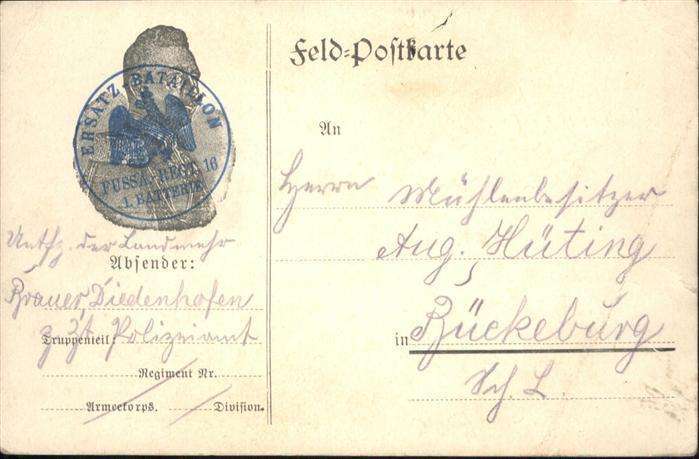 ERSATZ-BATAILLON
FUSSA. REGT. 16
1. BATTERIE
Feld=Postkarte
An
Herrn Mühlenbesitzer
Aug. Hüting
in Bückeburg
Sch. L.
Untfz. der Landwehr
Absender:
Brauer, Diedenhofen
Truppenteil: z. Zt. Polizeiamt
Regiment Nr.
Armeekorps. Division.